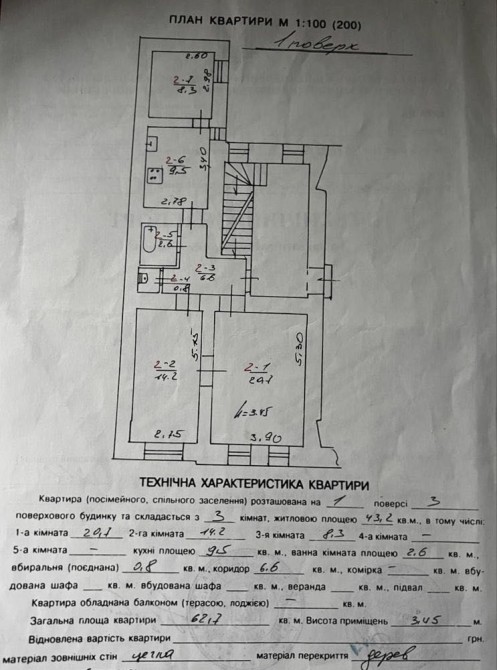 ПЛАН КВАРТИРИ М 1:100 (200)
1 поверх
2.80
2-7
8.3
2.98
2-6
9.5
3.40
2.78
2-5
2.6
2-3
6.6
2-4
0.8
2-2
14.2
5.45
2-1
20.7
5.30
h=3.45
2.75
3.90
ТЕХНІЧНА ХАРАКТЕРИСТИКА КВАРТИРИ
Квартира (посімейного, спільного заселення) розташована на 1 поверсі 3
поверхового будинку та складається з 3 кімнат, житловою площею 43,2 кв.м., в тому числі:
1-а кімната 20,7 2-га кімната 14.2 3-я кімната 8,3 4-а кімната –
5-а кімната – кухні площею 9,5 кв. м., ванна кімната площею 2.6 кв. м.,
вбиральня (поєднана) 0,8 кв. м., коридор 6.6 кв. м., комірка – кв. м. вбу-
дована шафа кв. м. вбудована шафа кв. м., веранда кв. м., підвал кв. м.
Квартира обладнана балконом (терасою, лоджією) – кв. м.
Загальна площа квартири 62,7 кв. м. Висота приміщень 3.45 м.
Відновлена вартість квартири грн.
матеріал зовнішніх стін цегла матеріал перекриття дерев